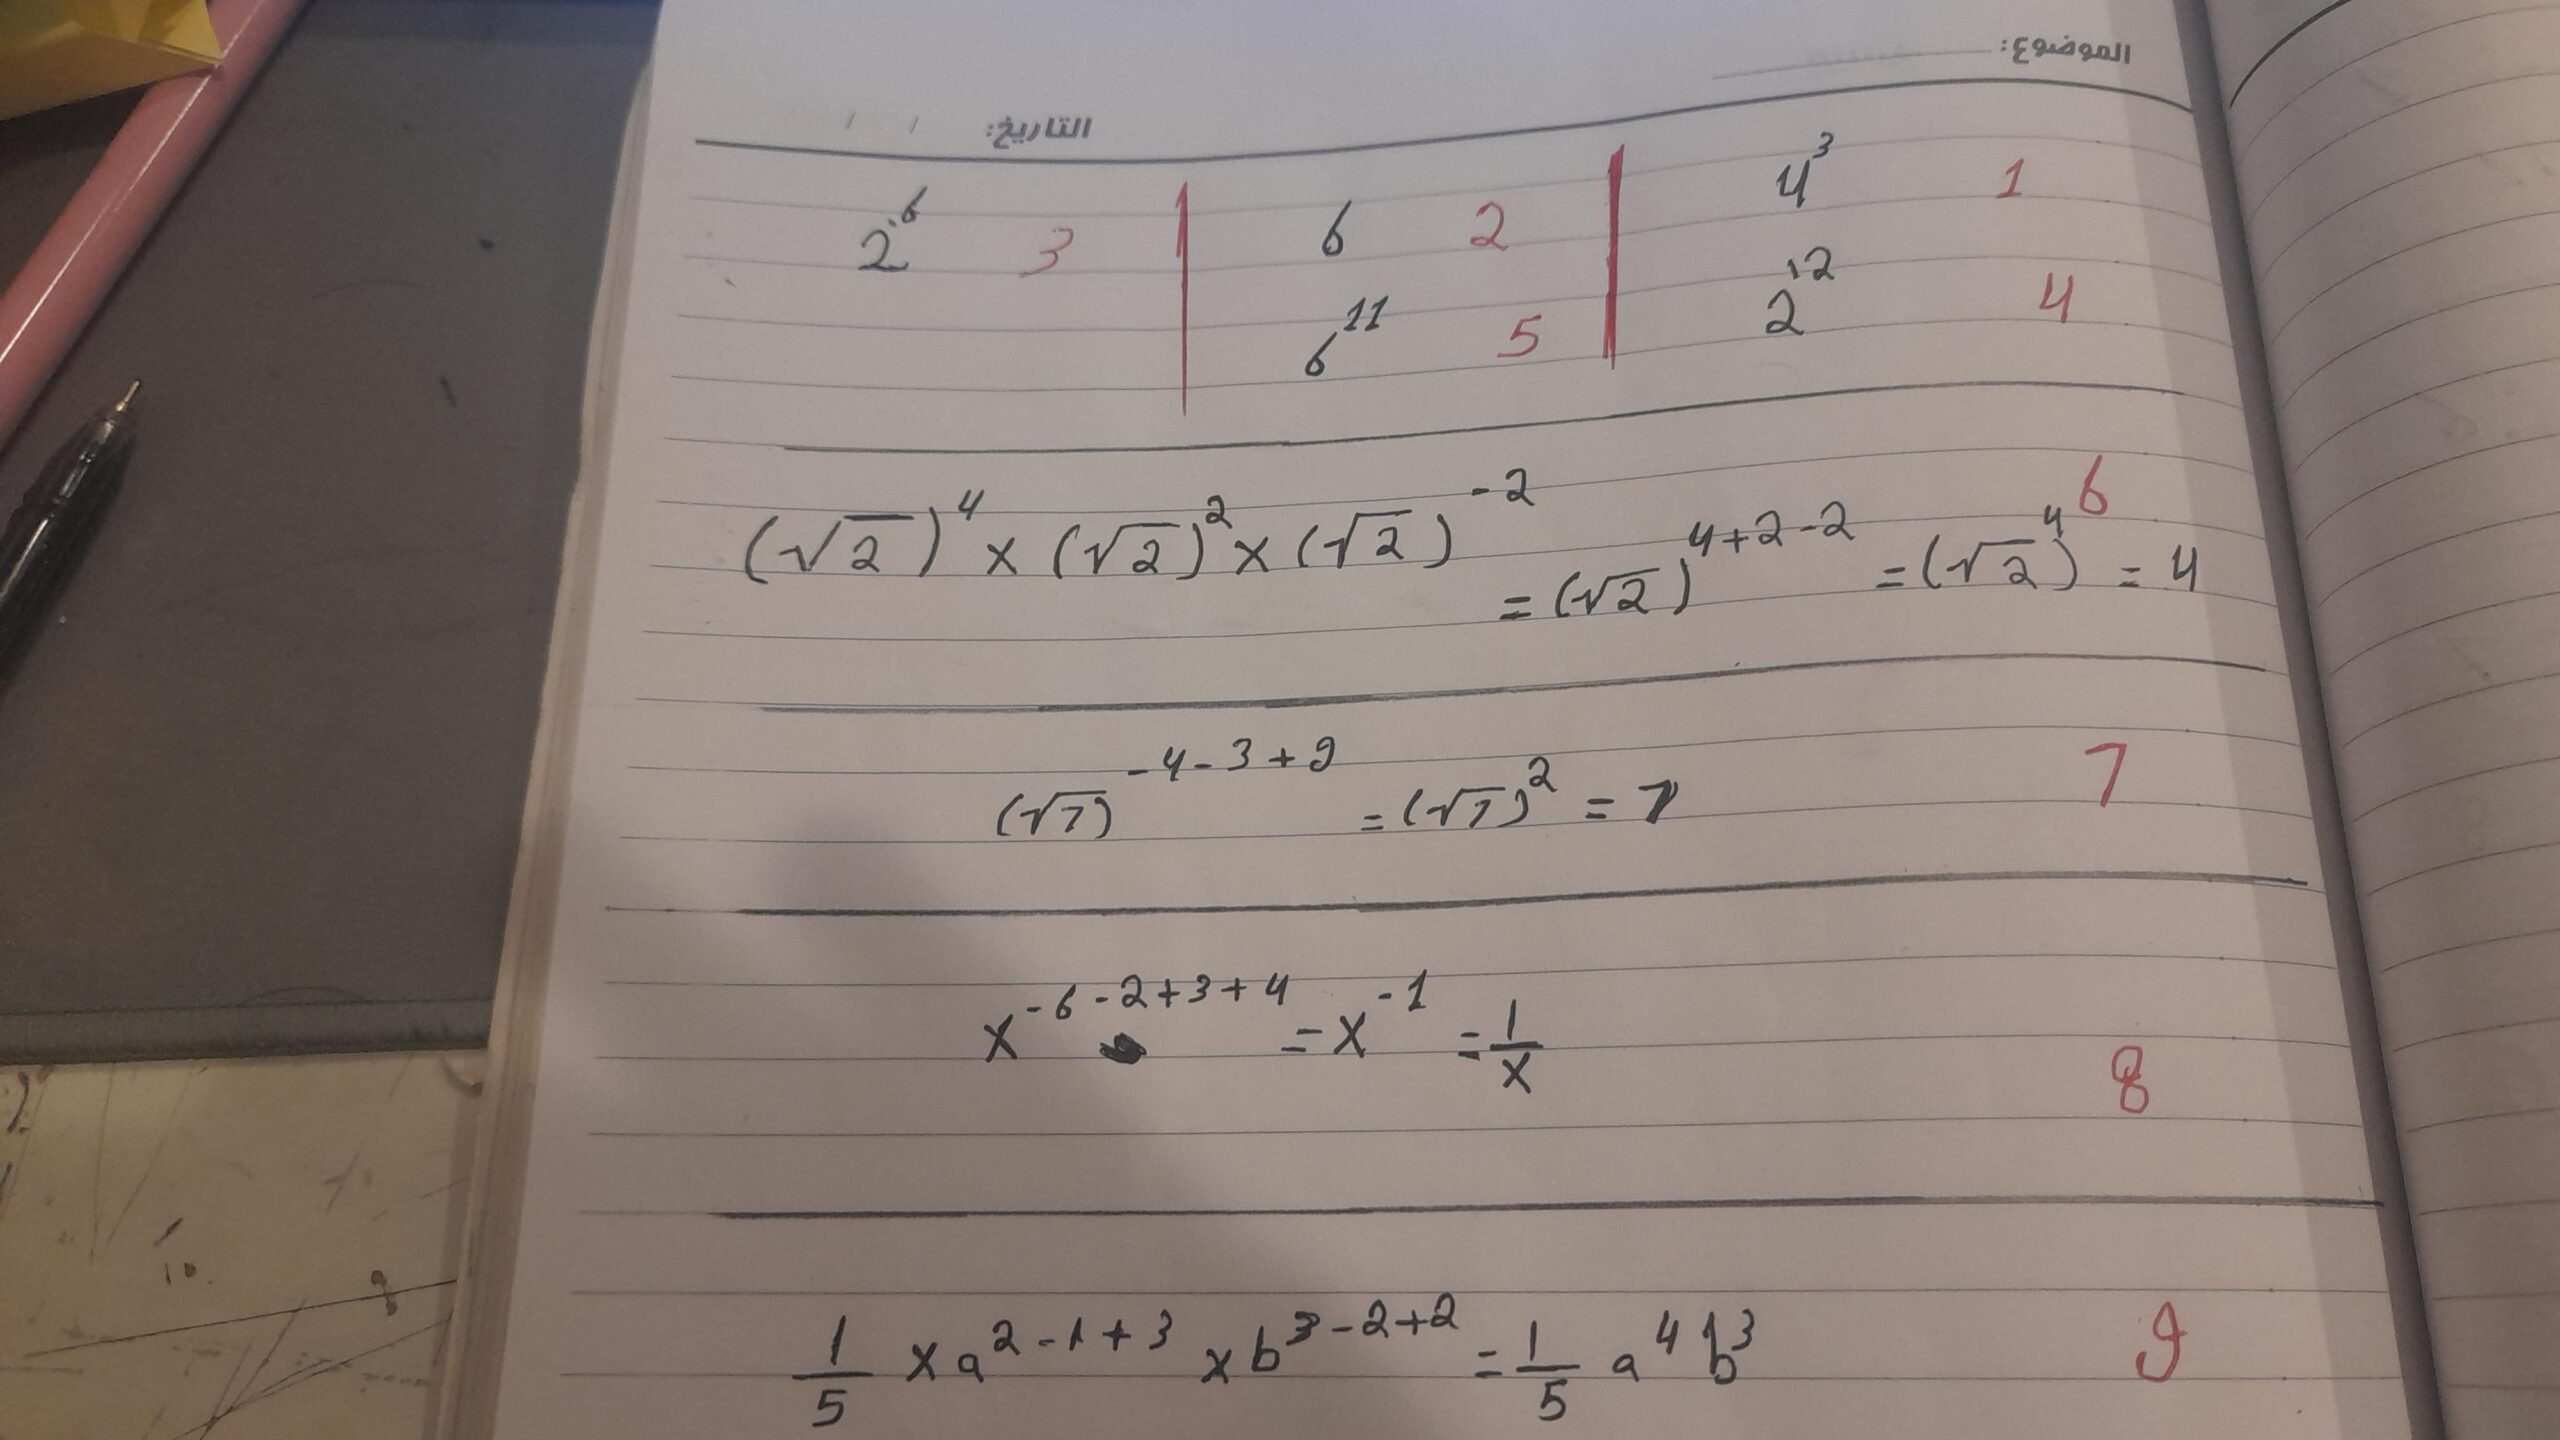 الموضوع:
التاريخ: / /
1 4³ | 2 6 | 3 2⁶
4 2¹² | 5 6¹¹
6
(√2)⁴ × (√2)² × (√2)⁻² = (√2)⁴⁺²⁻² = (√2)⁴ = 4
7
(√7)⁻⁴⁻³⁺⁹ = (√7)² = 7
8
x⁻⁶⁻²⁺³⁺⁴ = x⁻¹ = 1/x
9
1/5 × a²⁻¹⁺³ × b³⁻²⁺² = 1/5 a⁴ b³